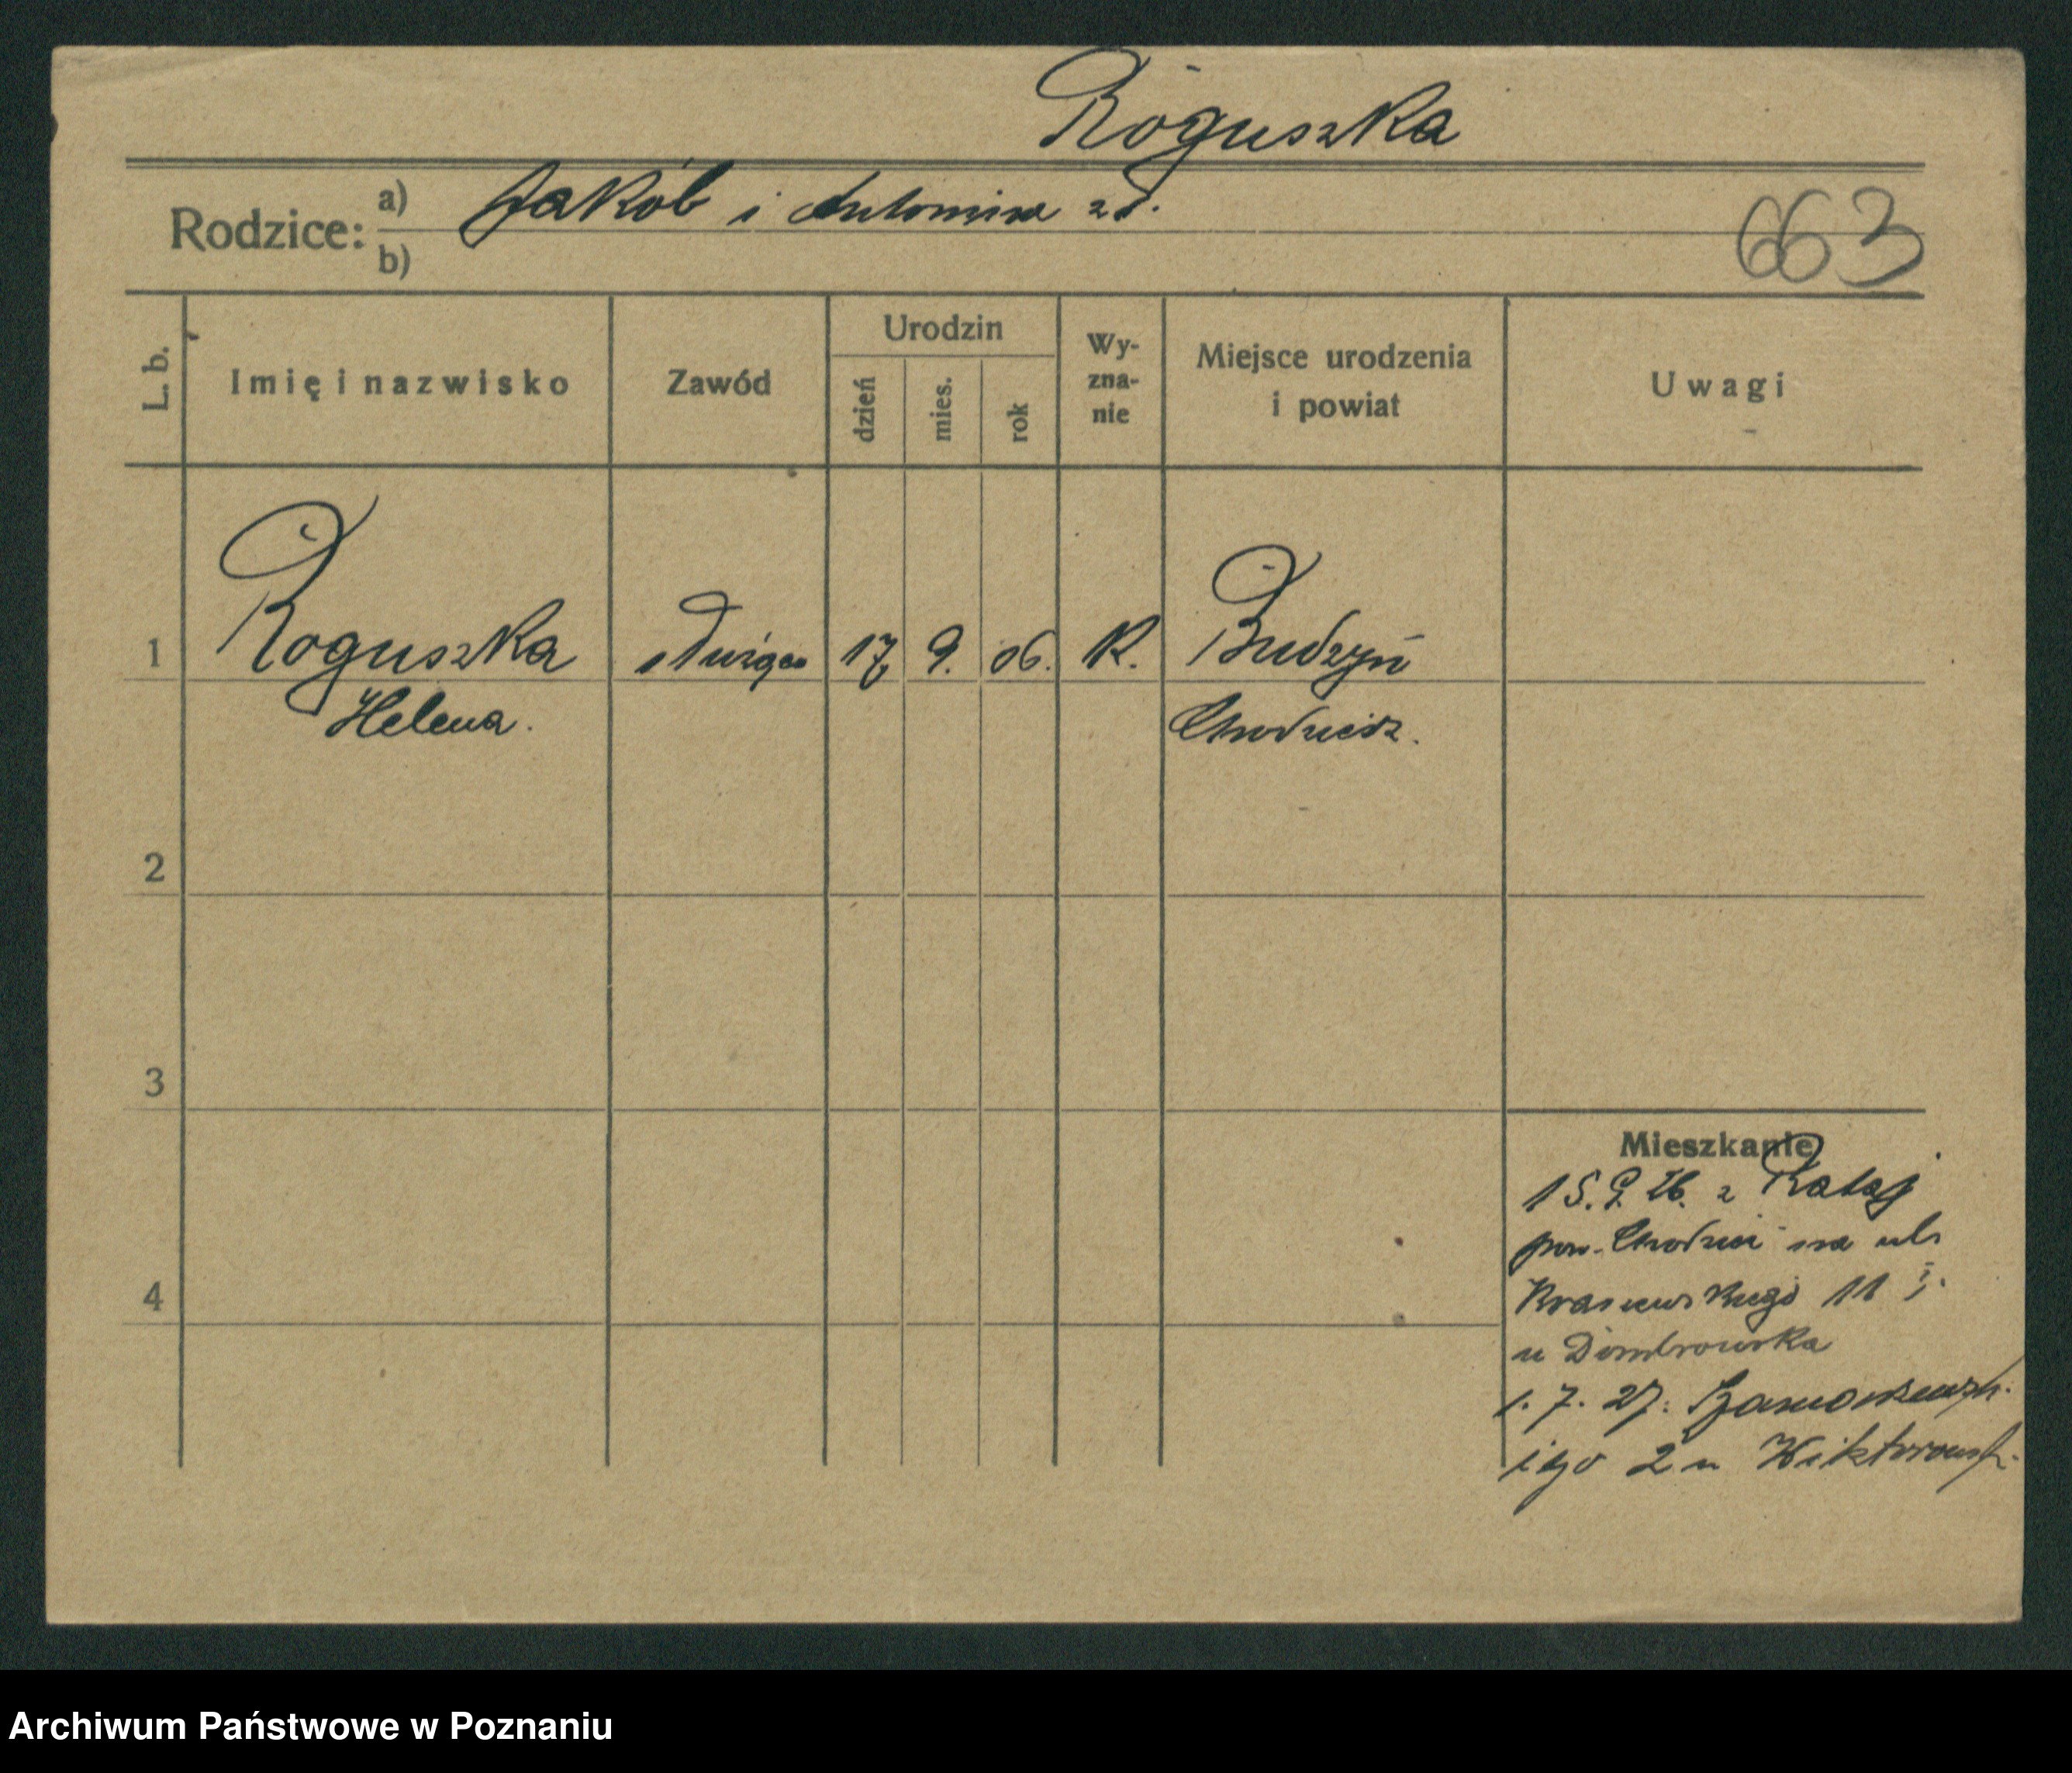 Roguszka
Rodzice: a) Jakób i Antonina zd.
b)
663
L. b.
Imię i nazwisko
Zawód
Urodzin
dzień
mies.
rok
Wy-
zna-
nie
Miejsce urodzenia
i powiat
Uwagi
1 Roguszka służąca 17 9. 06. K. Budzyń
Helena. Chodzież.
2
3
4
Mieszkanie
15. 9. 26. z Rataj
pow. Chodzież na ul.
Kraszewskiego 11
u Dombrowska
1. 7. 27.
2 u Wiktorowsk.
Archiwum Państwowe w Poznaniu